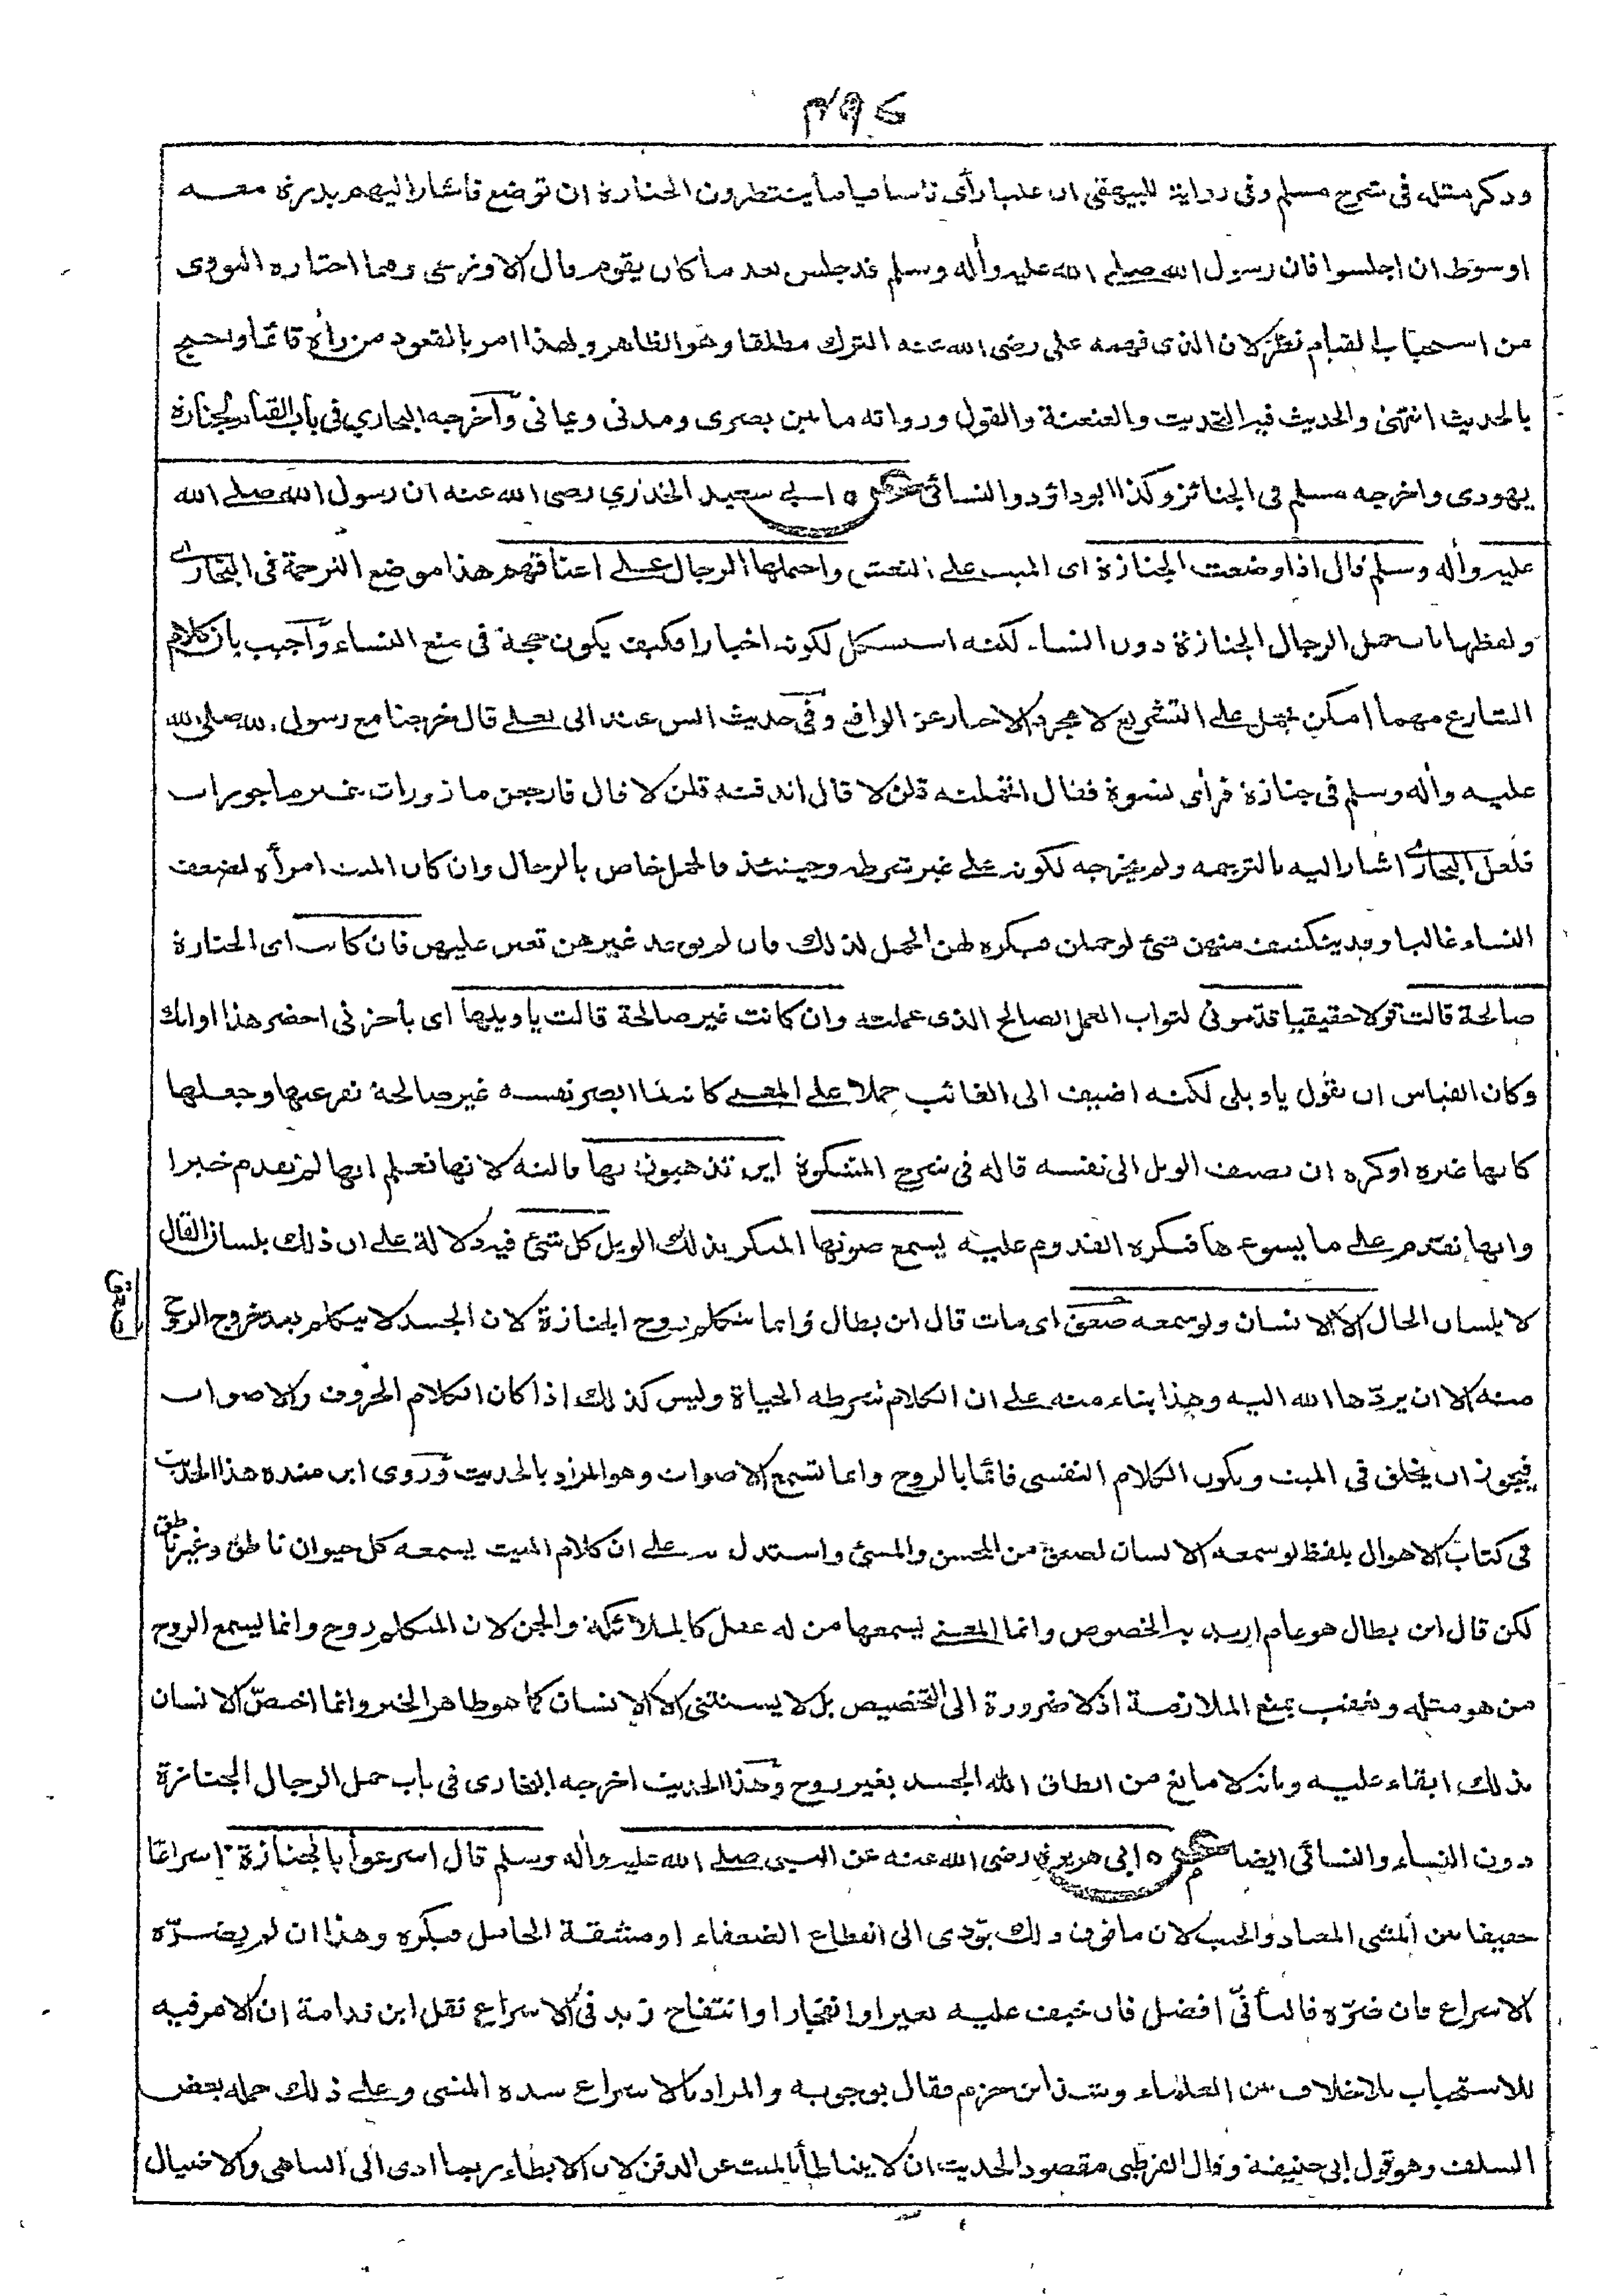 ۴۹۷
وذكر مثله فى شرح مسلم وفى رواية للبيهقى ان عليا رأى ناسا قياما ينتظرون الجنازة ان توضع فاشار اليهم بدرة معه
او سوط ان اجلسوا فان رسول الله صلى الله عليه وأله وسلم قد جلس بعد ما كان يقوم قال الاوزعى وهما اختاره النووى
من استحباب القيام نظر لان الذى فهمه على رضى الله عنه الترك مطلقا وهو الظاهر ولهذا امر بالقعود من رأه قائما واحتج
بالحديث انتهى والحديث فيه التحديث والعنعنة والقول ورواته ما بين بصرى ومدنى ويمانى وآخرجه البخاري فى باب القيام لجنازة
يهودى واخرجه مسلم فى الجنائز وكذا ابوداؤد والنسائى عن ابي سعيد الخذري رضى الله عنه ان رسول الله صلى الله
عليه وأله وسلم قال اذا وضعت الجنازة اى الميت على النعش واحتملها الرجال على اعناقهم هذا موضع الترجمة فى البخارى
ولفظها باب حمل الرجال الجنازة دون النساء لكنه استشكل لكونه اخبارا فكيف يكون حجة فى منع النساء وآجيب بان كلام
الشارع مهما امكن يحمل على التشريع لا مجرد الاخبار عن الواقع وفى حديث انس عند ابى يعلى قال خرجنا مع رسول الله صلى الله
عليه وأله وسلم فى جنازة فرأى نسوة فقال اتحملنه قلن لا قال اتدفنه قلن لا قال فارجعن مازورات غير ماجورات
فلعل البخارى اشار اليه بالترجمه ولم يخرجه لكونه على غير شرطه وحينئذ فالحمل خاص بالرجال وان كان الميت امرأه لضعف
النساء غالبا وقد ينكشف منهن شئ لو حملن فيكره لهن الحمل لذلك فان لم يوجد غيرهن تعين عليهن فان كانت اى الجنازة
صالحة قالت قولا حقيقيا قدمونى لثواب العمل الصالح الذى عملته وان كانت غير صالحة قالت ياويلها اى ياحزنى احضر هذا اوانك
وكان القياس ان نقول ياويلى لكنه اضيف الى الغائب حملا على المعنى كانه لما ابصر نفسه غير صالحة نفر عنها وجعلها
كانها غيره او كره ان يضيف الويل الى نفسه قاله فى شرح المشكوة اين تذهبون بها قالته لانها تعلم انها لم تقدم خيرا
وانها تقدم على ما يسوءها فتكره القدوم عليه يسمع صوتها المنكر بذلك الويل كل شئ فيه دلالة على ان ذلك بلسان القال
لا بلسان الحال الا الانسان ولو سمعه صعق اى مات قال ابن بطال وانما يتكلم روح الجنازة لان الجسد لا يتكلم بعد خروج الروح
منه الا ان يردها الله اليه وهذا بناء منه على ان الكلام شرطه الحياة وليس كذلك اذا كان الكلام الحروف والاصوات
فيجوز ان يخلق فى الميت ويكون الكلام النفسى قائما بالروح وانما تسمع الاصوات وهو المراد بالحديث وروى ابن منده هذا الحديث
فى كتاب الاهوال بلفظ لو سمعه الانسان لصعق من المحسن والمسئ واستدل به على ان كلام الميت يسمعه كل حيوان ناطق وغير ناطق
لكن قال ابن بطال هو عام اريد به الخصوص وانما المعنى يسمعها من له عقل كالملائكة والجن لان المتكلم روح وانما يسمع الروح
من هو مثله وتعقب بمنع الملازمة اذ لا ضرورة الى التخصيص بل لا يستثنى الا الانسان كما هو ظاهر الخبر وانما اختص الانسان
بذلك ابقاء عليه وبانه لا مانع من انطاق الله الجسد بغير روح وهذا الحديث اخرجه البخارى فى باب حمل الرجال الجنازة
دون النساء والنسائى ايضا عن ابى هريرة رضى الله عنه عن النبى صلى الله عليه وأله وسلم قال اسرعوا بالجنازة اسراعا
خفيفا بين المشى المعتاد والخبب لان ما فوق ذلك يؤدى الى انقطاع الضعفاء او مشقة الحامل فيكره وهذا ان لم يضره
الاسراع فان ضره فالتأنى افضل فان خيف عليه تغير او انفجار او انتفاخ زيد فى الاسراع نقل ابن قدامة ان الامر فيه
للاستحباب بلا خلاف بين العلماء وشذ ابن حزم فقال بوجوبه والمراد بالاسراع شدة المشى وعلى ذلك حمله بعض
السلف وهو قول ابى حنيفة وقال القرطبى مقصود الحديث ان لا يتباطأ بالميت عن الدفن لان الابطاء ربما ادى الى التباهى والاختيال